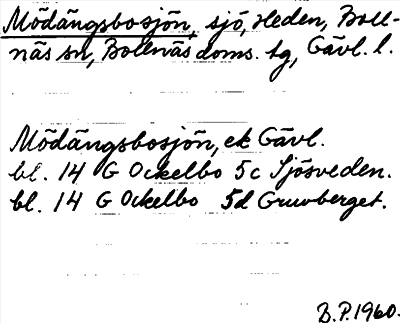 Mödängsbosjön, sjö, Heden, Boll-
näs sn, Bollnäs doms. tg, Gävl. l.
Mödängsbosjön, ek Gävl.
bl. 14 G Ockelbo 5c Sjösveden.
bl. 14 G Ockelbo 5d Gruvberget.
B.P. 1960.